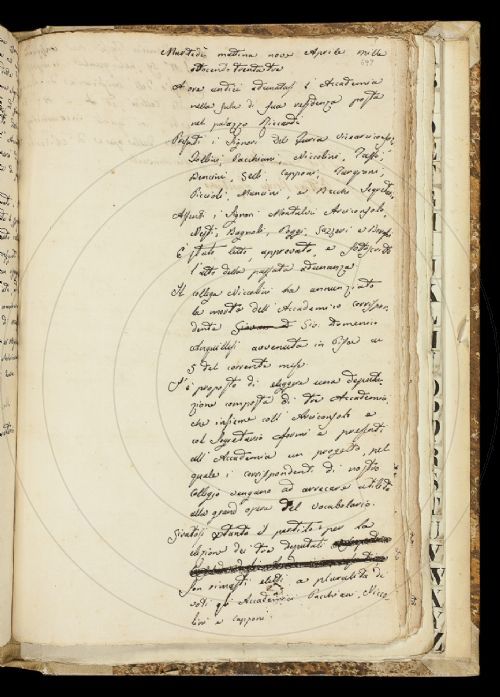 Martedì mattina nove Aprile mille
697
ottocentotrentatre
A ore undici adunatasi l'Accademia
nella Sala di sua residenza posta
nel palazzo Riccardi
Presenti i Signori Del Furia Vicearciconso,
Pollini, Pacchiani, Niccolini, Tassi,
Bencini, Selli, Capponi, Targioni,
Piccioli, Mancini, e Becchi Segreto
Assenti i Signori Montalvi Arciconsolo,
Nesti, Bagnoli, Poggi, Sazzeri, e
È stato letto approvato, e sottoscritto
l'atto della passata adunanza
Il collega Niccolini ha annunziato
la morte dell'Accademico corrispon
dente Gio. Domenico
Anguillesi avvenuta in Pisa a
5 del corrente mese
S'è proposto di eleggere una deputa
zione composta di tre Accademici
che insieme coll'Arciconsolo e
col Segretario formi e presenti
all'Accademia un progetto, pel
quale i corrispondenti di nostro
Collegio vengano ad arrecare utilità
alla grand'opera del vocabolario.
Giratosi il partito per la
elezione dei tre deputati
son rimasti eletti a pluralità di
voti gli Accademici Pacchiani, Nicco
lini e Capponi
I
K
L
O
P
Q
R
S
T
U
V
W
X
Y
Z